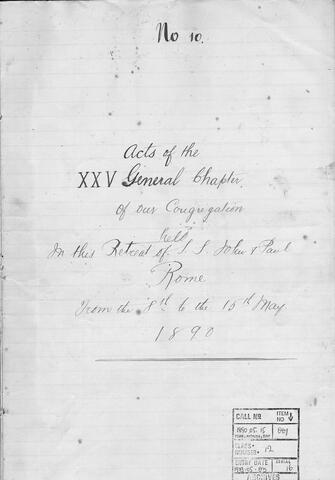 No 10.
Acts of the
XXV General Chapter
of our Congregation
held
In this Retreat of S.S. John & Paul
Rome
From the 8th to the 15th May
1890
CALL NO. ITEM NO
1890-05-15
CLASS- NUMBER- 12
ENTRY DATE SERIAL
16
ARCHIVES